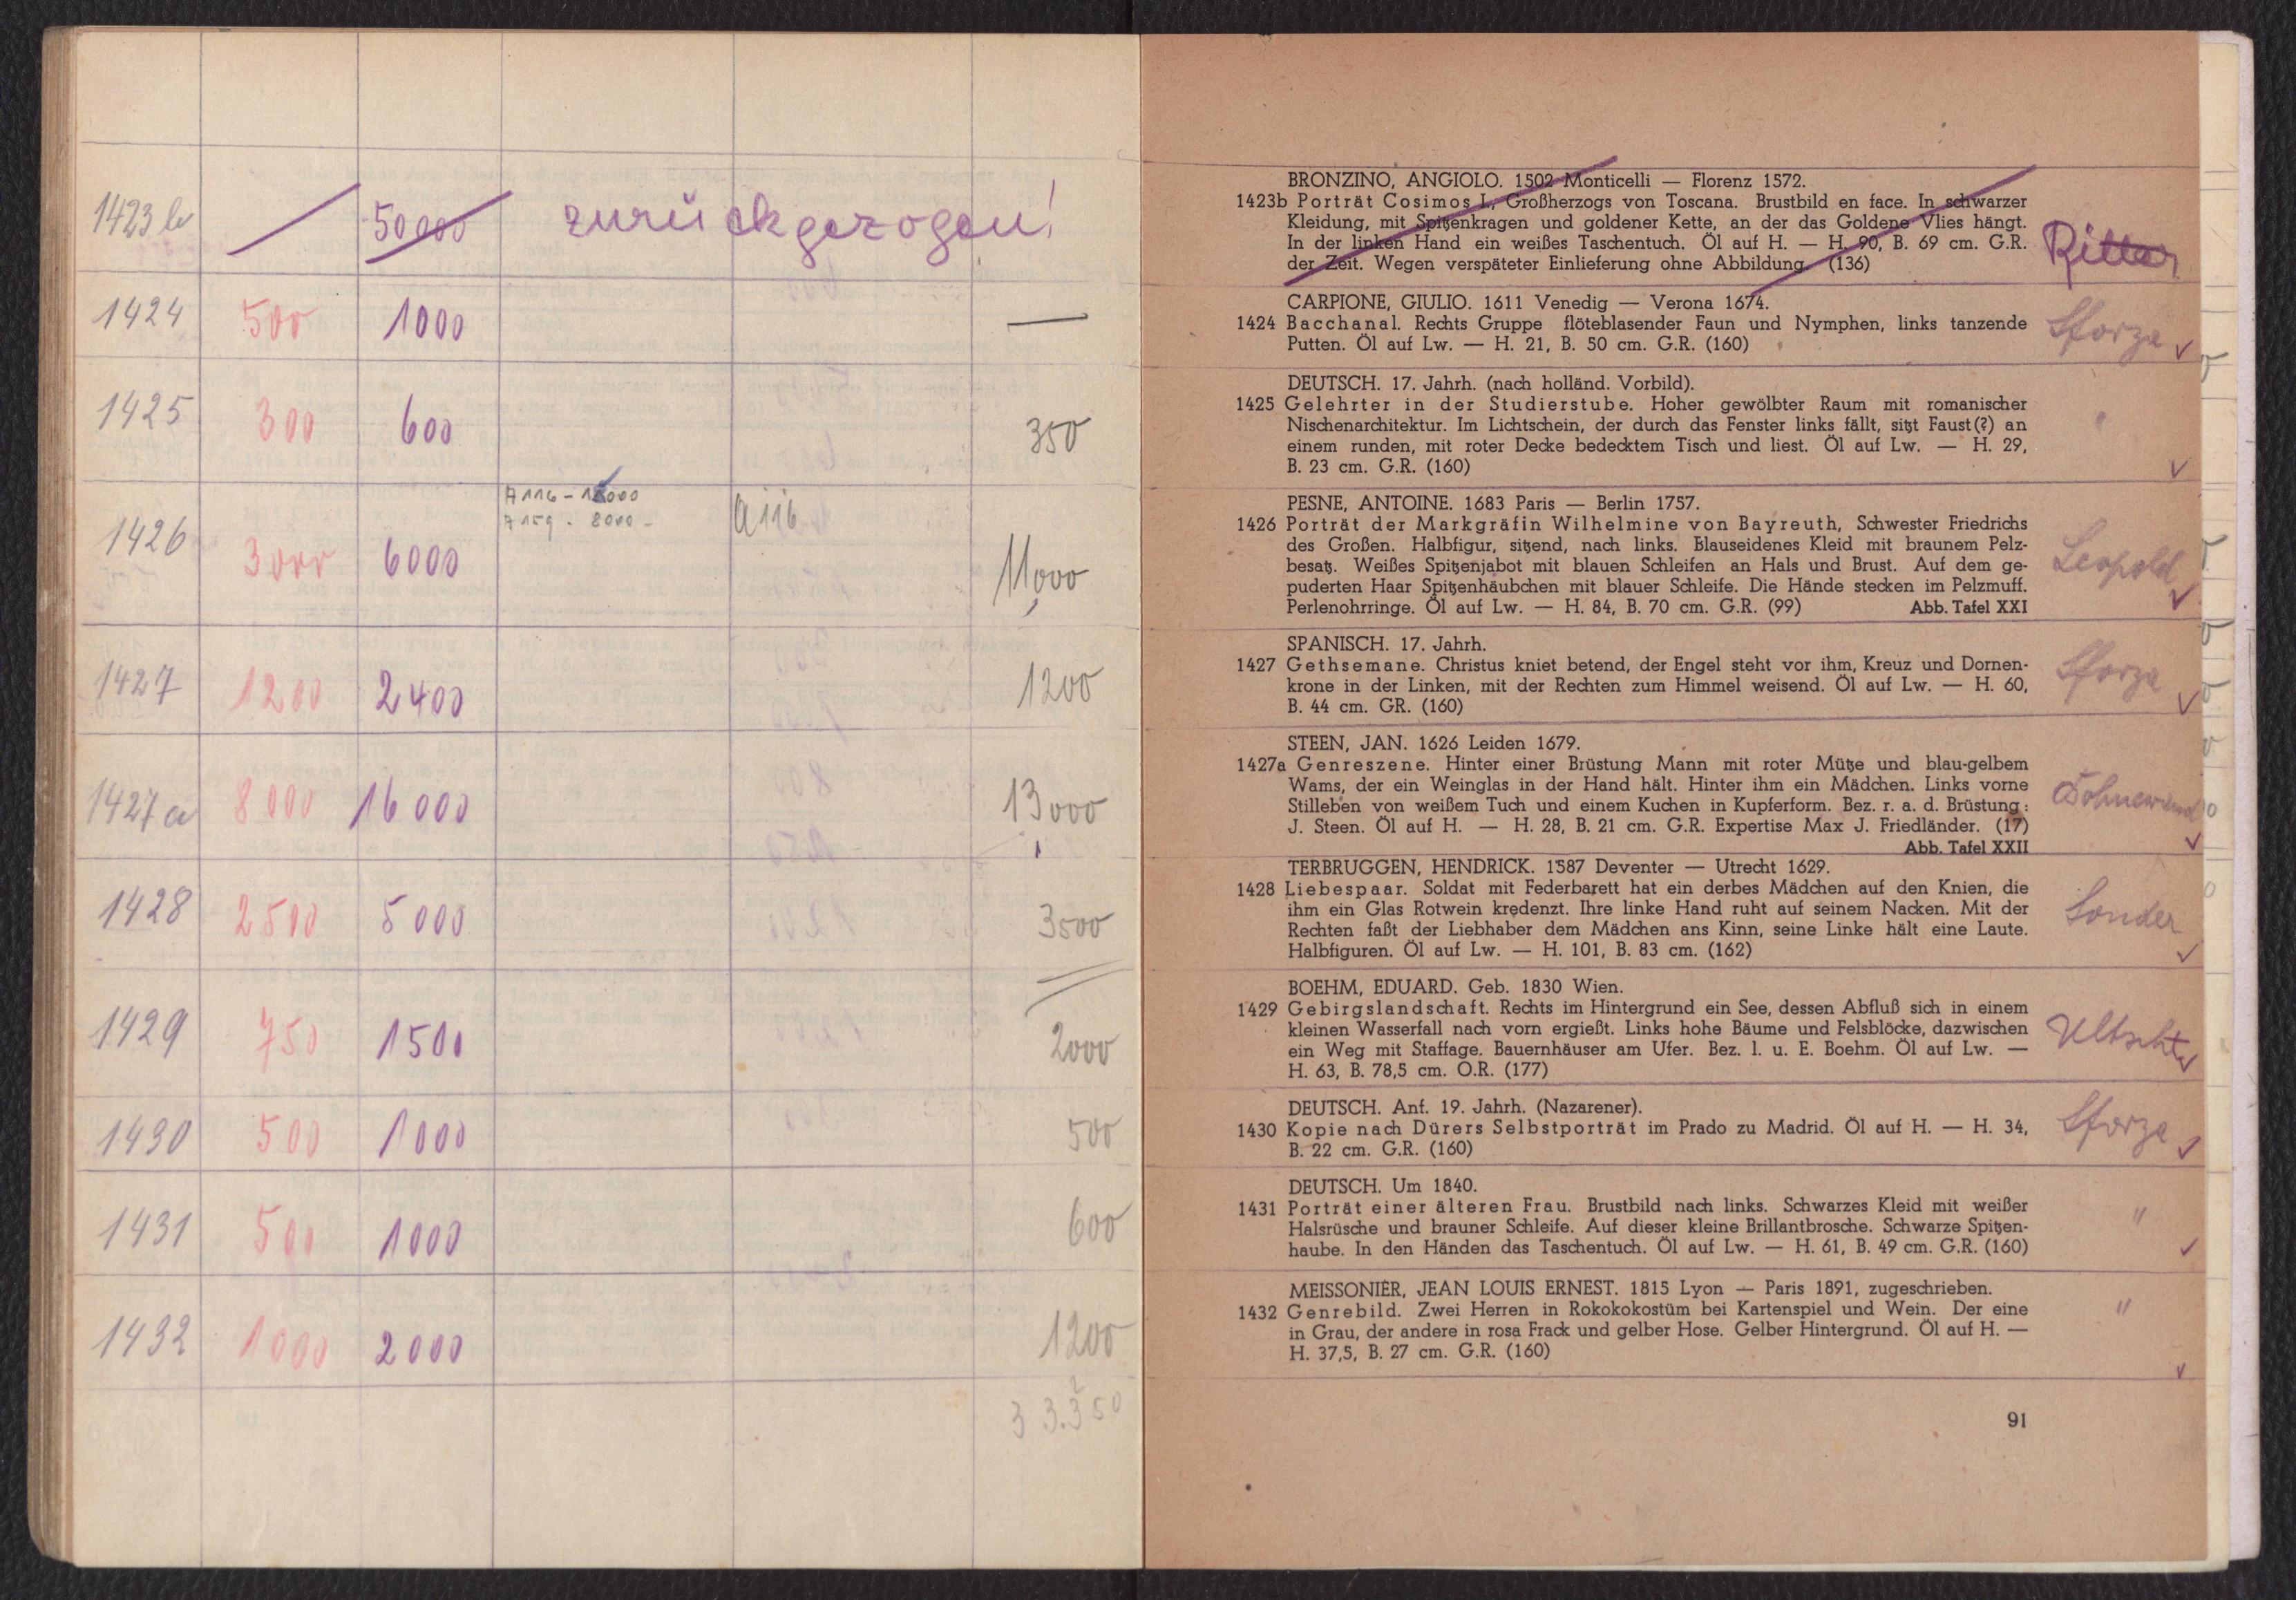 1423b 50000 zurückgezogen!
1424 500 1000 —
1425 300 600 350
A116 - 15000 A 116
A159 - 8000 -
1426 3000 6000 11,000
1427 1200 2400 1200
1427a 8000 16000 13000
1428 2500 5000 3500
1429 750 1500 2000
1430 500 1000 500
1431 500 1000 600
1432 1000 2000 1200
BRONZINO, ANGIOLO. 1502 Monticelli — Florenz 1572.
1423b Porträt Cosimos I., Großherzogs von Toscana. Brustbild en face. In schwarzer
Kleidung, mit Spitzenkragen und goldener Kette, an der das Goldene Vlies hängt.
In der linken Hand ein weißes Taschentuch. Öl auf H. — H. 90, B. 69 cm. G.R.
der Zeit. Wegen verspäteter Einlieferung ohne Abbildung. (136)
Ritter
CARPIONE, GIULIO. 1611 Venedig — Verona 1674.
1424 Bacchanal. Rechts Gruppe flöteblasender Faun und Nymphen, links tanzende
Putten. Öl auf Lw. — H. 21, B. 50 cm. G.R. (160)
Sforza ✓
DEUTSCH. 17. Jahrh. (nach holländ. Vorbild).
1425 Gelehrter in der Studierstube. Hoher gewölbter Raum mit romanischer
Nischenarchitektur. Im Lichtschein, der durch das Fenster links fällt, sitzt Faust(?) an
einem runden, mit roter Decke bedecktem Tisch und liest. Öl auf Lw. — H. 29,
B. 23 cm. G.R. (160)
" ✓
PESNE, ANTOINE. 1683 Paris — Berlin 1757.
1426 Porträt der Markgräfin Wilhelmine von Bayreuth, Schwester Friedrichs
des Großen. Halbfigur, sitzend, nach links. Blauseidenes Kleid mit braunem Pelz-
besatz. Weißes Spitzenjabot mit blauen Schleifen an Hals und Brust. Auf dem ge-
puderten Haar Spitzenhäubchen mit blauer Schleife. Die Hände stecken im Pelzmuff.
Perlenohrringe. Öl auf Lw. — H. 84, B. 70 cm. G.R. (99) Abb. Tafel XXI
Leopold ✓
SPANISCH. 17. Jahrh.
1427 Gethsemane. Christus kniet betend, der Engel steht vor ihm, Kreuz und Dornen-
krone in der Linken, mit der Rechten zum Himmel weisend. Öl auf Lw. — H. 60,
B. 44 cm. GR. (160)
Sforza ✓
STEEN, JAN. 1626 Leiden 1679.
1427a Genreszene. Hinter einer Brüstung Mann mit roter Mütze und blau-gelbem
Wams, der ein Weinglas in der Hand hält. Hinter ihm ein Mädchen. Links vorne
Stilleben von weißem Tuch und einem Kuchen in Kupferform. Bez. r. a. d. Brüstung:
J. Steen. Öl auf H. — H. 28, B. 21 cm. G.R. Expertise Max J. Friedländer. (17)
Abb. Tafel XXII
✓
TERBRUGGEN, HENDRICK. 1587 Deventer — Utrecht 1629.
1428 Liebespaar. Soldat mit Federbarett hat ein derbes Mädchen auf den Knien, die
ihm ein Glas Rotwein kredenzt. Ihre linke Hand ruht auf seinem Nacken. Mit der
Rechten faßt der Liebhaber dem Mädchen ans Kinn, seine Linke hält eine Laute.
Halbfiguren. Öl auf Lw. — H. 101, B. 83 cm. (162)
Sonder ✓
BOEHM, EDUARD. Geb. 1830 Wien.
1429 Gebirgslandschaft. Rechts im Hintergrund ein See, dessen Abfluß sich in einem
kleinen Wasserfall nach vorn ergießt. Links hohe Bäume und Felsblöcke, dazwischen
ein Weg mit Staffage. Bauernhäuser am Ufer. Bez. l. u. E. Boehm. Öl auf Lw. —
H. 63, B. 78,5 cm. O.R. (177)
✓
DEUTSCH. Anf. 19. Jahrh. (Nazarener).
1430 Kopie nach Dürers Selbstporträt im Prado zu Madrid. Öl auf H. — H. 34,
B. 22 cm. G.R. (160)
Sforza ✓
DEUTSCH. Um 1840.
1431 Porträt einer älteren Frau. Brustbild nach links. Schwarzes Kleid mit weißer
Halsrüsche und brauner Schleife. Auf dieser kleine Brillantbrosche. Schwarze Spitzen-
haube. In den Händen das Taschentuch. Öl auf Lw. — H. 61, B. 49 cm. G.R. (160)
" ✓
MEISSONIER, JEAN LOUIS ERNEST. 1815 Lyon — Paris 1891, zugeschrieben.
1432 Genrebild. Zwei Herren in Rokokokostüm bei Kartenspiel und Wein. Der eine
in Grau, der andere in rosa Frack und gelber Hose. Gelber Hintergrund. Öl auf H. —
H. 37,5, B. 27 cm. G.R. (160)
" ✓
91